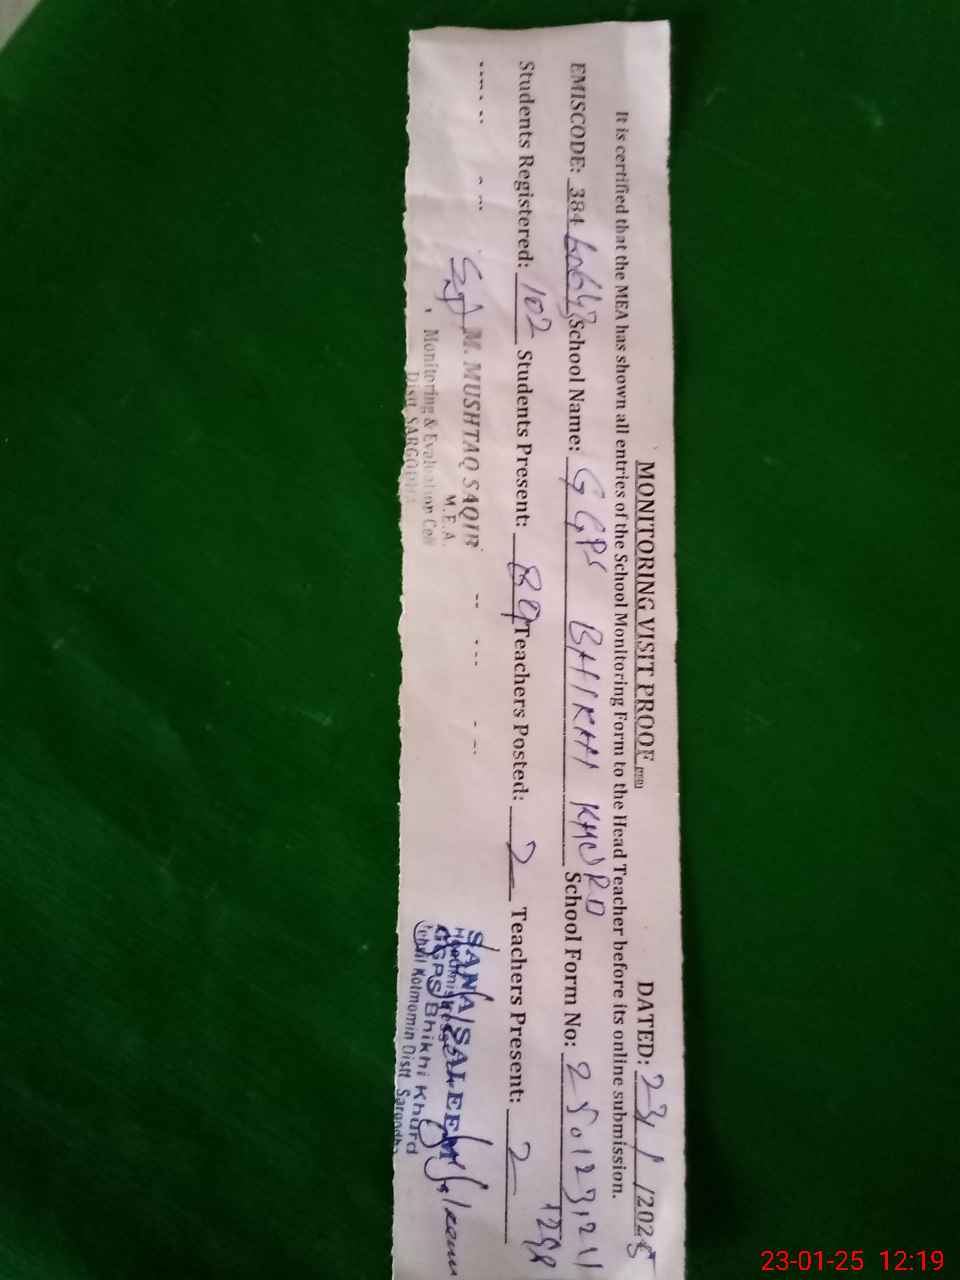 MONITORING VISIT PROOF DATED: 23/1/2025
It is certified that the MEA has shown all entries of the School Monitoring Form to the Head Teacher before its online submission.
EMISCODE: 384 School Name: GGPS BHIKHI KHURD School Form No:
Students Registered: 102 Students Present: 89 Teachers Posted: 2 Teachers Present: 2
M. MUSHTAQ SAQIB
M.E.A.
Monitoring & Evaluation Cell
Distt. SARGODHA
SANA SALEEM
Headmistress
GGPS Bhikhi Khurd
Tehsil Kotmomin Distt Sargodha
23-01-25 12:19